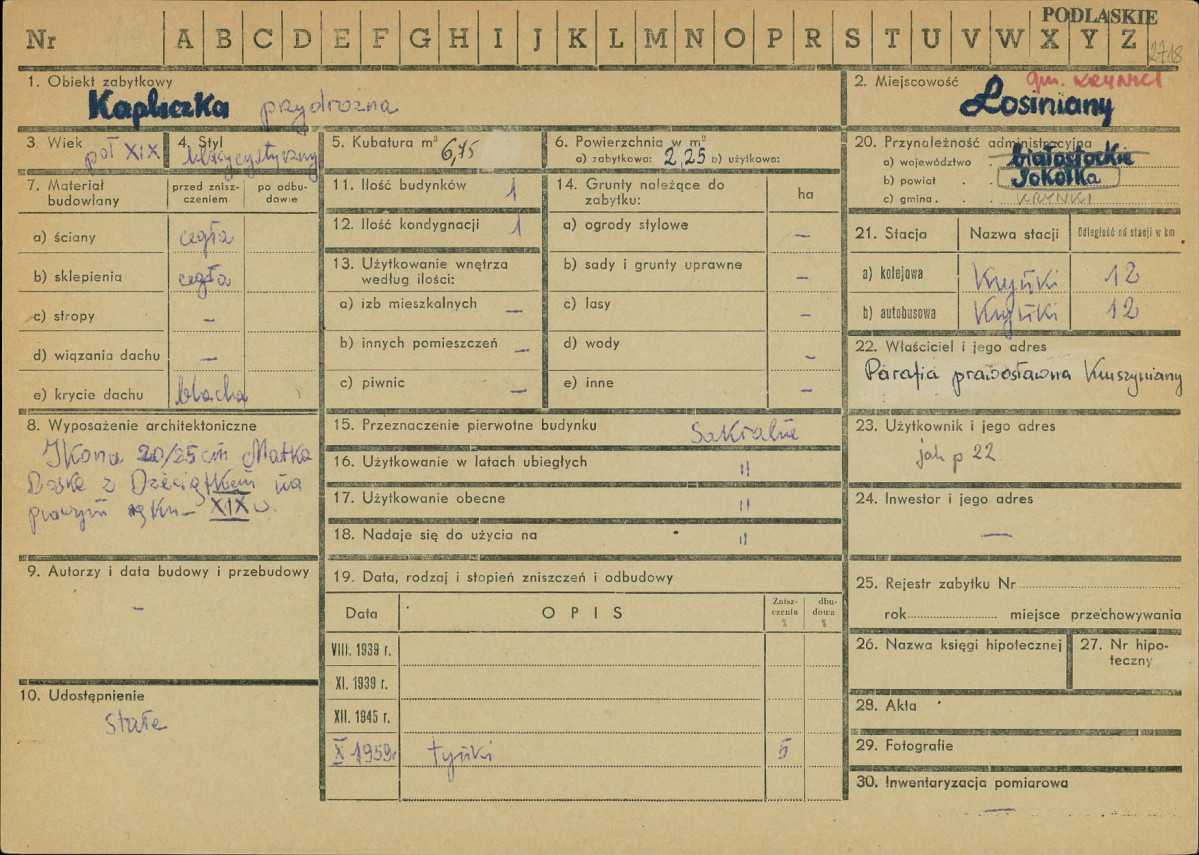 PODLASKIE
Nr A B C D E F G H I J K L M N O P R S T U V W X Y Z 2718
1. Obiekt zabytkowy
Kapliczka przydrożna
2. Miejscowość gm. KRYNKI
Łosiniany
3. Wiek
poł XIX
4. Styl
klasycystyczny
5. Kubatura m³ 6,75
6. Powierzchnia w m²
a) zabytkowa: 2,25 b) użytkowa:
7. Materiał budowlany
przed znisz-
czeniem
po odbu-
dowie
a) ściany cegła
b) sklepienia cegła
c) stropy –
d) wiązania dachu –
e) krycie dachu blacha
8. Wyposażenie architektoniczne
Ikona 20/25 cm Matka
Boska z Dzieciątkiem na
prawym ręku – XIX w.
9. Autorzy i data budowy i przebudowy
–
10. Udostępnienie
Stałe
11. Ilość budynków 1
12. Ilość kondygnacji 1
13. Użytkowanie wnętrza
według ilości:
a) izb mieszkalnych –
b) innych pomieszczeń –
c) piwnic –
14. Grunty należące do
zabytku:
ha
a) ogrody stylowe –
b) sady i grunty uprawne –
c) lasy –
d) wody –
e) inne –
15. Przeznaczenie pierwotne budynku Sakralne
16. Użytkowanie w latach ubiegłych "
17. Użytkowanie obecne "
18. Nadaje się do użycia na "
19. Data, rodzaj i stopień zniszczeń i odbudowy
Data OPIS
Znisz-
czenia
%
dbu-
dowa
%
VIII. 1939 r.
XI. 1939 r.
XII. 1945 r.
X 1959r tynki 5
20. Przynależność administracyjna
a) województwo białostockie
b) powiat Sokółka
c) gmina KRYNKI
21. Stacja Nazwa stacji Odległość od stacji w km
a) kolejowa Krynki 12
b) autobusowa Krynki 12
22. Właściciel i jego adres
Parafia prawosławna Kruszyniany
23. Użytkownik i jego adres
jak p 22
24. Inwestor i jego adres
–
25. Rejestr zabytku Nr
rok miejsce przechowywania
26. Nazwa księgi hipotecznej
27. Nr hipo-
teczny
28. Akta
29. Fotografie
30. Inwentaryzacja pomiarowa
–